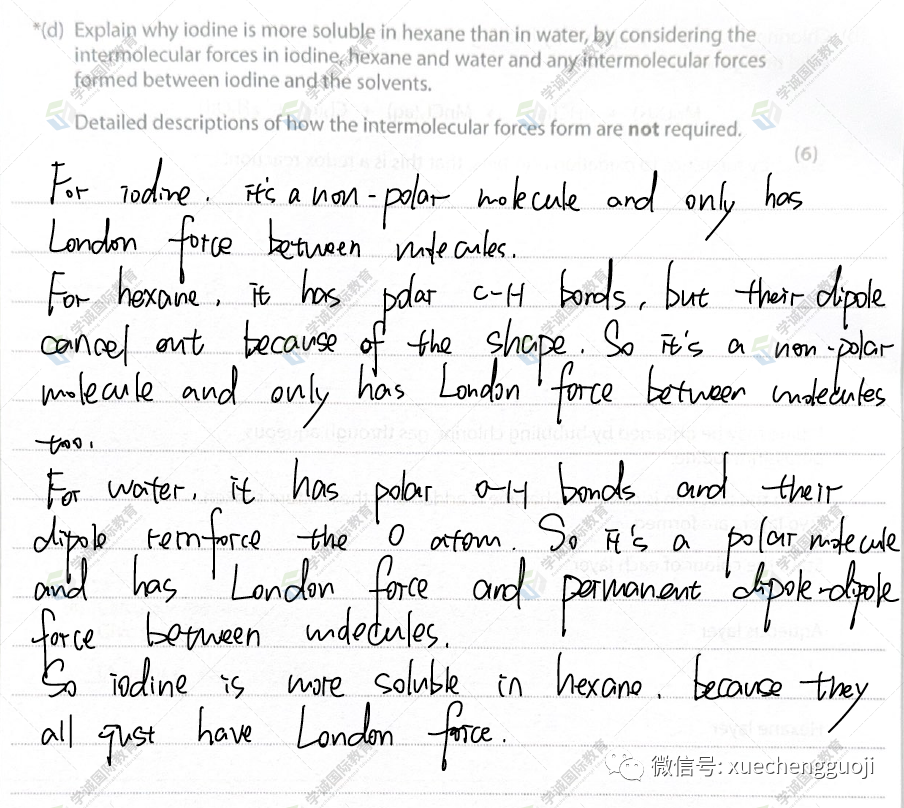 *(d) Explain why iodine is more soluble in hexane than in water, by considering the
intermolecular forces in iodine, hexane and water and any intermolecular forces
formed between iodine and the solvents.
Detailed descriptions of how the intermolecular forces form are not required.
(6)
For iodine. it's a non-polar molecule and only has
London force between molecules.
For hexane, it has polar C-H bonds, but their dipole
cancel out because of the shape. So it's a non-polar
molecule and only has London force between molecules
too.
For water, it has polar O-H bonds and their
dipole reinforce the O atom. So it's a polar molecule
and has London force and permanent dipole-dipole
force between molecules.
So iodine is more soluble in hexane. because they
all just have London force.
微信号: xuechengguoji
学诚国际教育